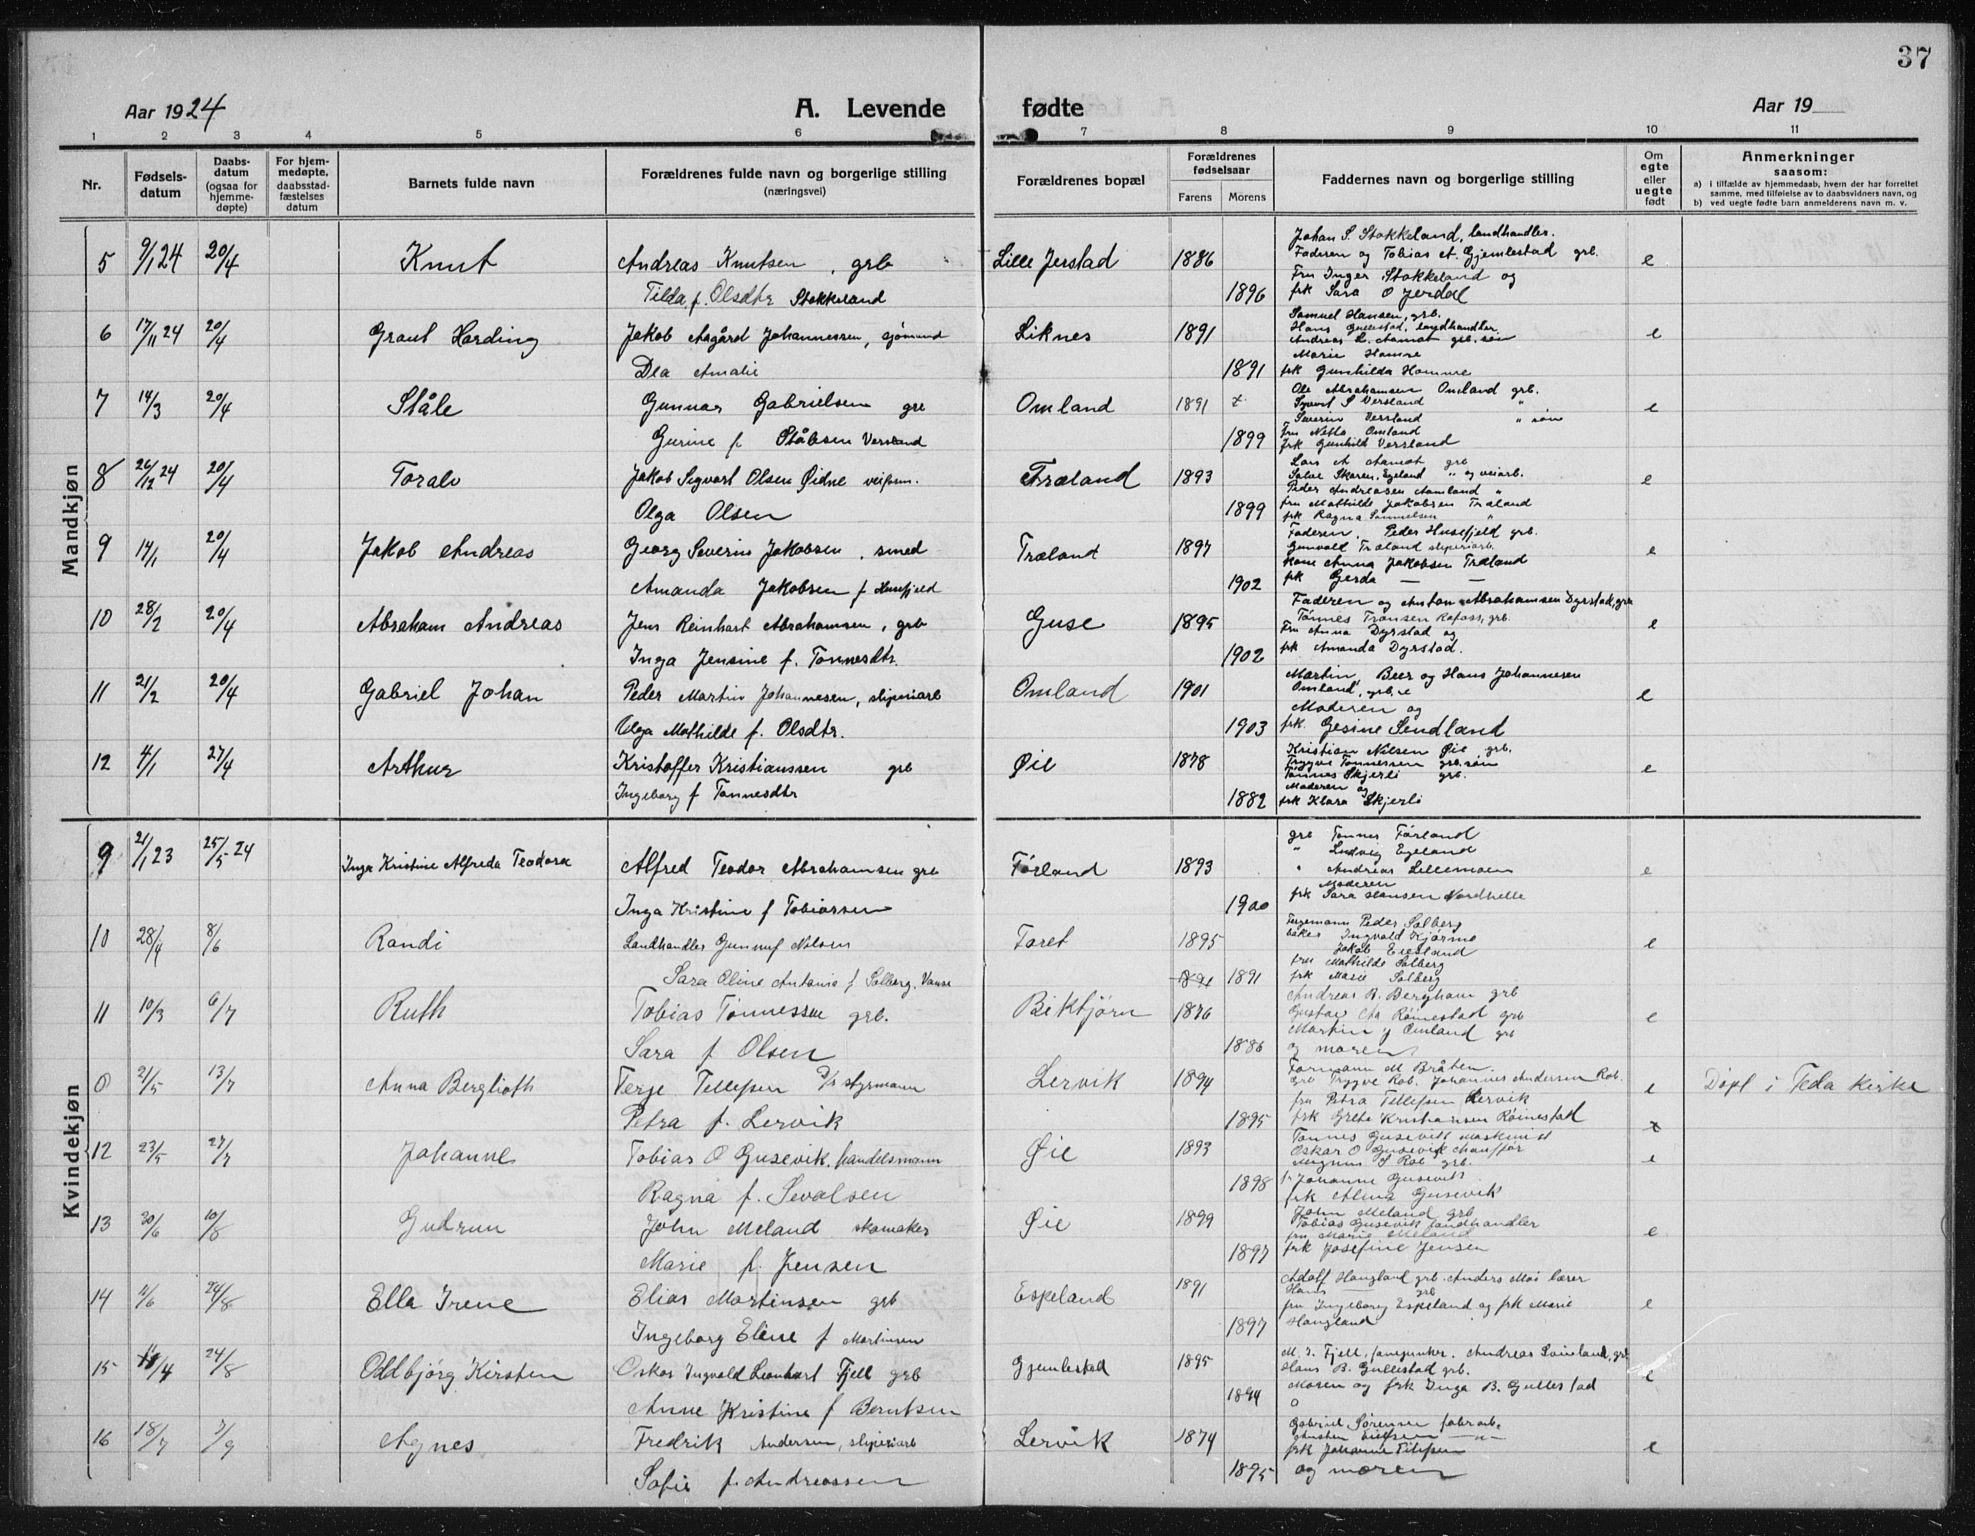 37
Aar 1924
A. Levende
fødte
Aar 19
1 2 3 4 5 6 7 8 9 10 11
Nr.
Fødsels-
datum
Daabs-
datum
(ogsaa for
hjemme-
døpte)
For hjem-
medøpte,
daabsstad-
fæstelses
datum
Barnets fulde navn
Forældrenes fulde navn og borgerlige stilling
(næringsvei)
Forældrenes bopæl
Forældrenes
fødselsaar
Farens Morens
Faddernes navn og borgerlige stilling
Om
egte
eller
uegte
født
Anmerkninger
saasom:
a) i tilfælde av hjemmedaab, hvem der har forrettet
samme, med tilføielse av to daabsvidners navn, og
b) ved uegte fødte barn anmelderens navn m. v.
Mandkjøn
5 9/1 24 20/4 Knut Andreas Knutsen, grb Lille Jerstad 1886 e
Tilda f. Olsdtr Stokkeland 1896
Johan S. Stokkeland, landhandler.
Faderen og Tobias A. Gjemlestad grb.
Fru Inger Stokkeland og
frk Sara O Jerdal
6 17/11 24 20/4 Graut Harding Jakob Aagård Johannessen, sjømand Liknes 1891 e
Dea Amalie 1891
Samuel Hansen, grb.
Hans Gullestad, landhandler.
Andreas L. Aamot grb. søn
Marie Hamre
frk Gunhilda Hamre
7 14/3 20/4 Ståle Gunnar Gabrielsen grb Omland 1891 x e
Gurine f Stålesen Versland 1899
Ole Abrahamsen Omland grb.
Sigvart S Versland "
Severin Versland " søn
fru Netta Omland
frk Gunhild Versland
8 26/12 24 20/4 Toralv Jakob Sigvart Olsen Øidne Træland 1893 e
Olga Olsen 1899
Lars A Aamot grb
Salve Skaren, Egeland " og veiarb.
Peder Andreasen Aamland "
fru Mathilde Jakobsen Træland
frk Ragna Samuelsen "
9 14/1 20/4 Jakob Andreas Georg Severin Jakobsen, smed Træland 1897 e
Amanda Jakobsen f Husefjeld 1902
Faderen. Peder Husefjeld grb.
Gunvald Træland sliperiarb.
Kone Anna Jakobsen Træland
frk Gerda — —
10 28/2 20/4 Abraham Andreas Jens Reinhart Abrahamsen, grb Guse 1895 e
Inga Jensine f. Tønnesdtr. 1902
Faderen og Anton Abrahamsen Dyrstad, grb
Tønnes Tronsen Rafoss, grb.
Fru Anna Dyrstad og
frk Amanda Dyrstad.
11 21/2 20/4 Gabriel Johan Peder Martin Johannesen, sliperiarb Omland 1901 e
Olga Mathilde f. Olsdtr. 1903
Martin, Beer og Hans Johannesen
Omland, grb.e
Moderen og
frk. Gesine Sendland
12 4/1 27/4 Arthur Kristoffer Kristianssen grb Øie 1878 e
Ingeborg f Tønnesdtr 1882
Kristian Nilsen Øie grb.
Trygve Tønnessen grb. søn
Tønnes Skjerli grb.
Moderen og
frk Klara Skjerli
Kvindekjøn
9 21/1 23 25/5 24 Inga Kristine Alfreda Teodora Alfred Teodor Abrahamsen grb Førland 1893 e
Inga Kristine f Tobiassen 1900
grb Tønnes Førland
" Ludvig Egeland
" Andreas Lillemoen
Moderen
frk Sara Hansen Nordhelle
10 28/4 8/6 Randi Landhandler Gunnuf Nilsen Faret 1895 e
Sara Oline Antonie f Solberg, Vanse 1891
Peder Solberg
baker Ingvald Kjørmo
Jakob Egeland
fru Mathilde Solberg
frk Marie Solberg
11 10/3 6/7 Ruth Tobias Tønnessen grb. Birkfjørn 1876 e
Sara f Olsen 1886
Andreas B. Bergham grb
Gustav Chr Røinestad grb
Martin J Omland grb
og moren
0 21/5 13/7 Anna Bergljoth Terje Tellefsen styrmann Lervik 1894 e Døpt i Feda Kirke
Petra f. Lervik 1895 x
Formann M Bråten.
grb Trygve Rob. Johannes Andersen Rob.
fru Petra Tellefsen Lervik
frk Grete Kristiansen Røinestad
12 23/5 27/7 Johanne Tobias O Gusevik, handelsmann Øie 1893 e
Ragna f. Sevalsen 1898
Tønnes Gusevik maskinist
Oskar O Gusevik chauffør
Magnus S Rob grb.
fr Johanne Gusevik
frk Alma Gusevik
13 30/6 10/8 Gudrun John Meland skomaker Øie 1899 e
Marie f. Jensen 1897
John Meland grb
Tobias Gusevik landhandler
fru Marie Meland
frk Josefine Jensen
14 24/8 Ella Irene Elias Martinsen grb Espeland 1891 e
Ingeborg Eline f Martinsen 1897
Adolf Haugland grb. Anders Moi lærer
Hans — grb
fru Ingeborg Espeland og frk Marie
Haugland
15 24/8 Oddbjørg Kirsten Oskar Ingvald Leonhart Fjell grb Gjemlestad 1895 e
Anne Kristine f Berntsen 1894
M. I. Fjell, Andreas Loineland, grb
Hans B. Gullestad grb.
Moren og frk Inga B. Gullestad
16 18/7 7/9 Agnes Fredrik Andersen, sliperiarb Lervik 1874 e
Sofie f. Andreassen 1895
Gabriel Sørensen fabr.arb.
—"—
frk Johanne Tellefsen
og moren